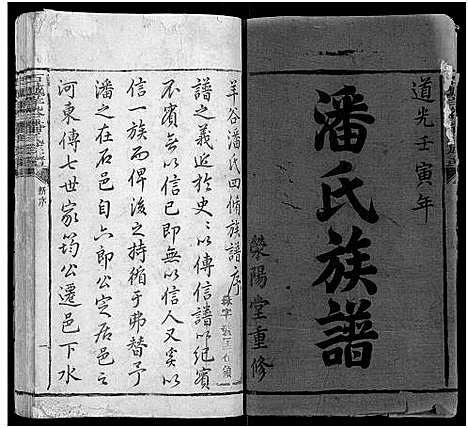 道光壬寅年
潘氏族譜
滎陽堂重修
羊谷潘氏四修族譜序
譜之義近於史史以傳信譜以紀實
不實無以信已即無以信人又奚以
信一族而俾後之持循于弗替予
潘之在石邑自六郎公定居邑之
河東傳七世家筠公遷邑下水
新序